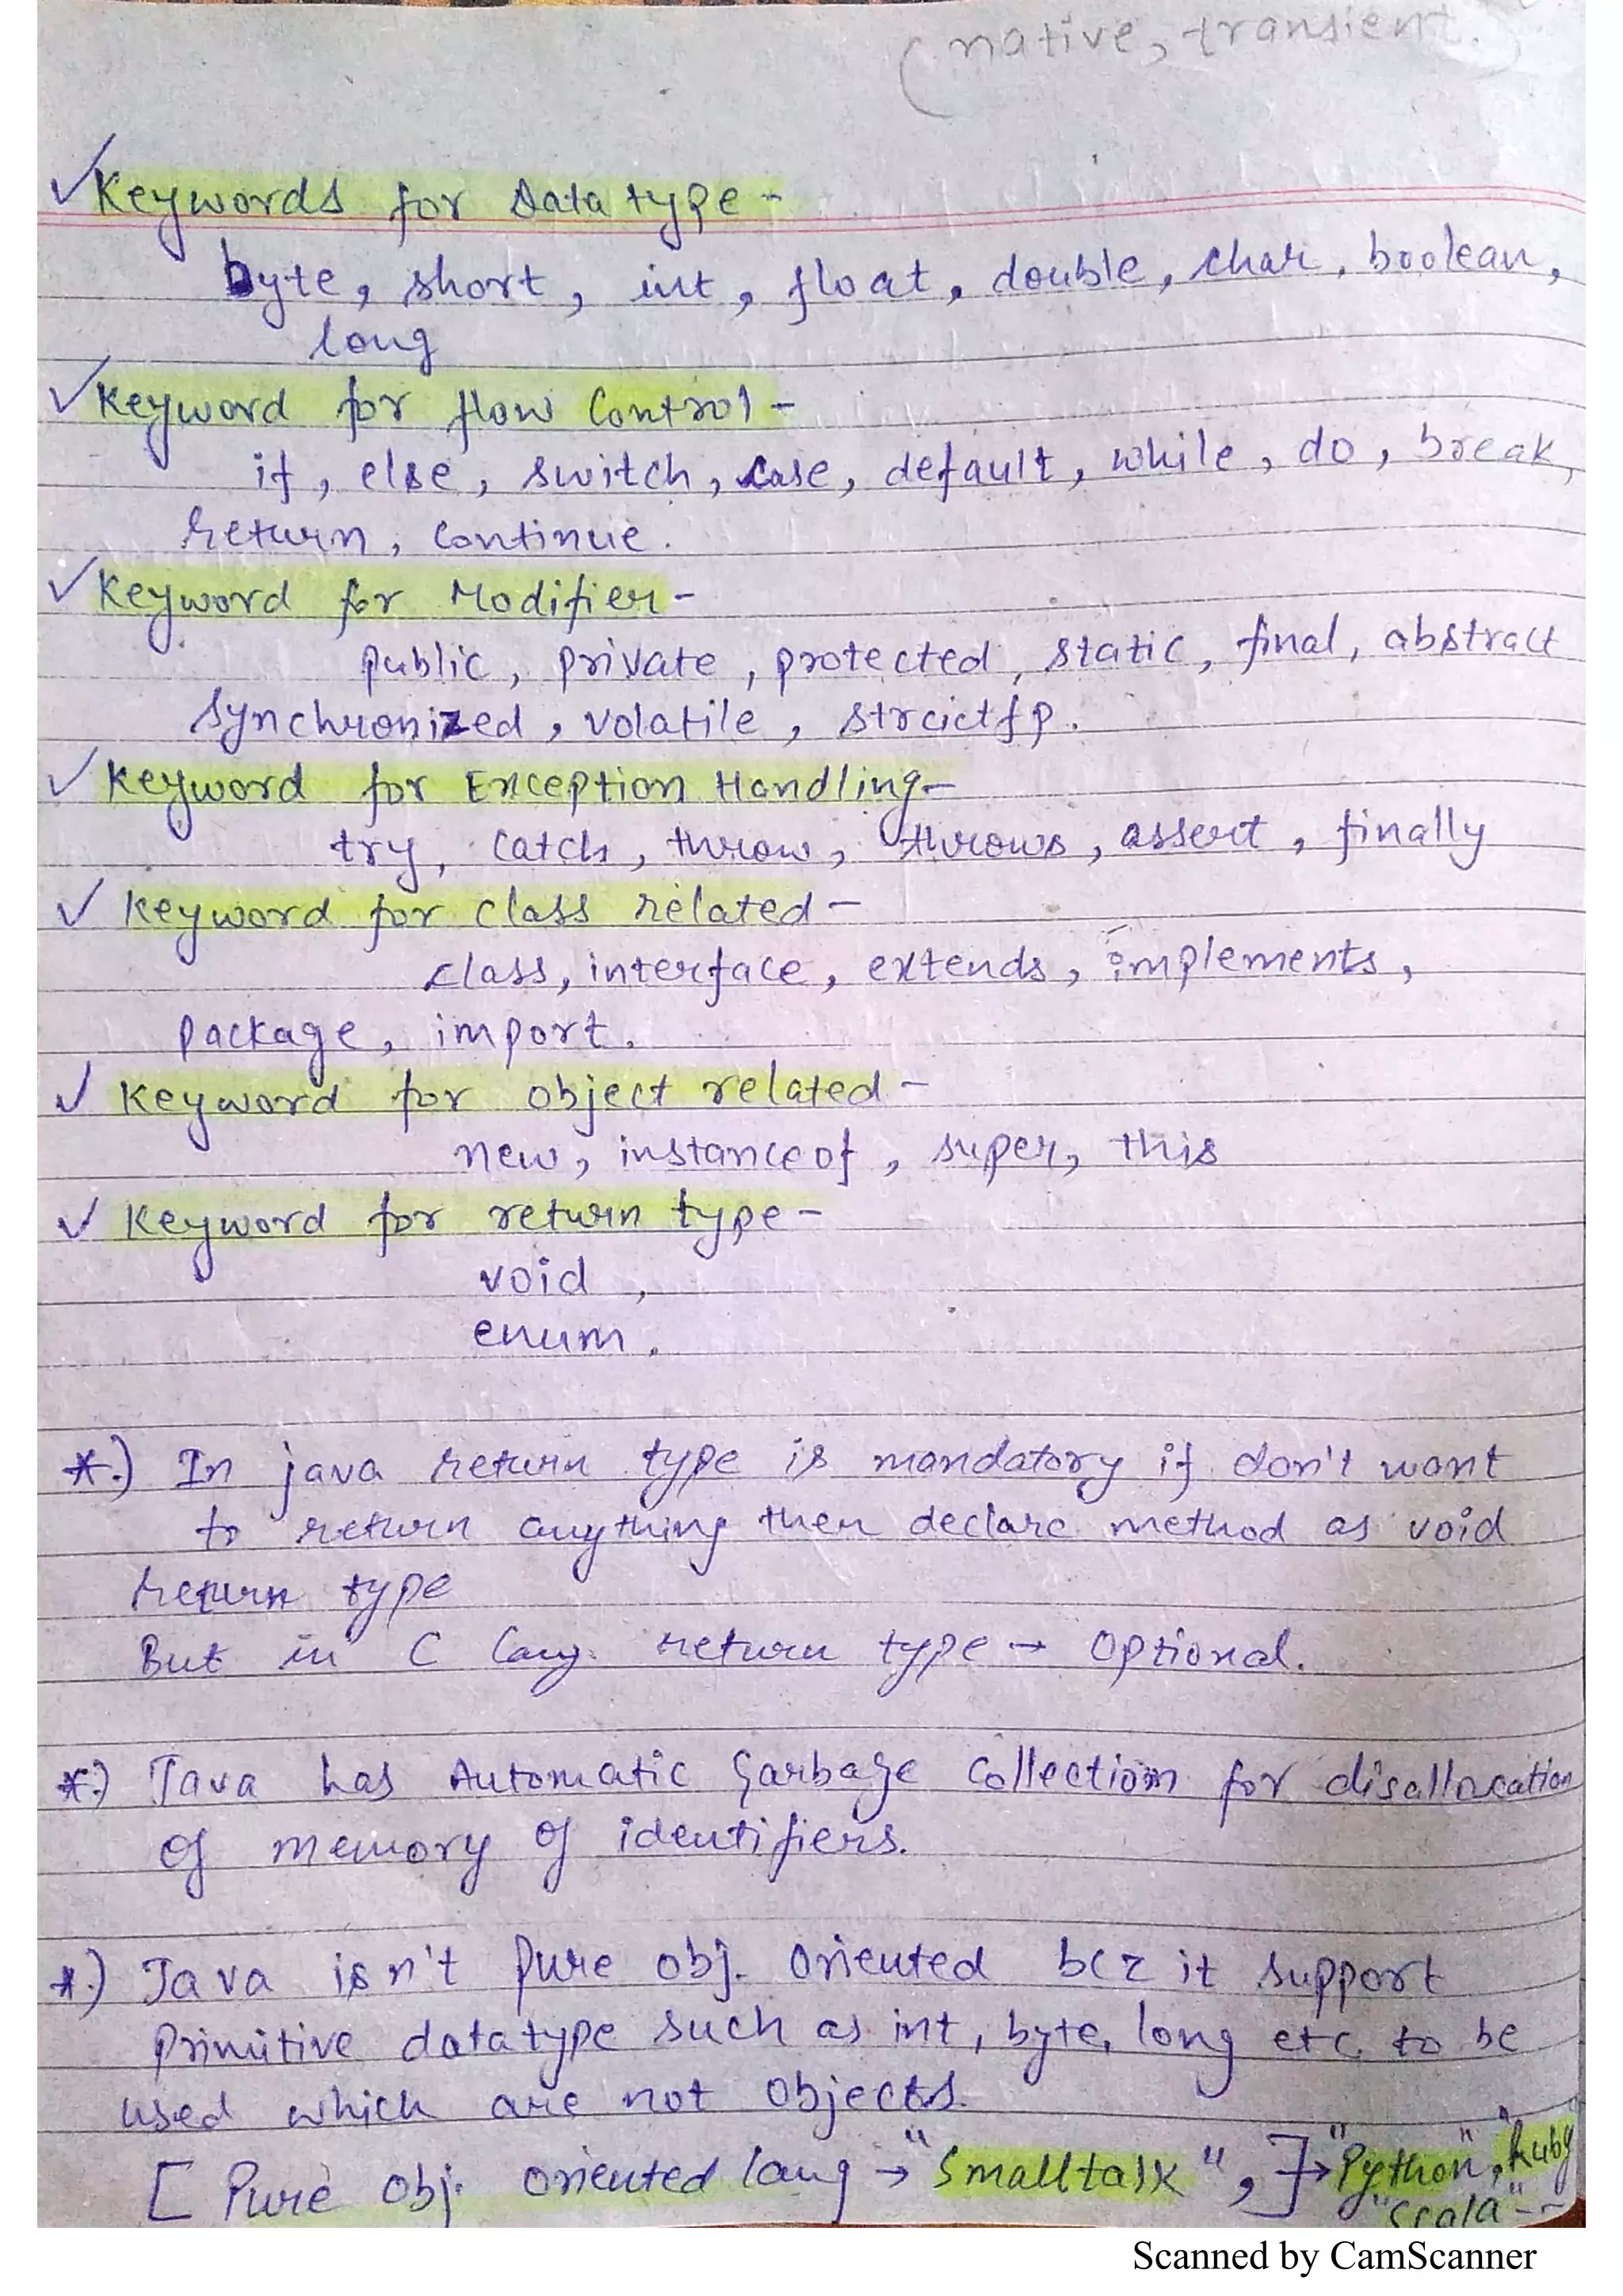 (native, transient.)
Keywords for Data type -
byte, short, int, float, double, char, boolean,
long
Keyword for flow Control -
if, else, switch, case, default, while, do, break,
return, continue.
Keyword for Modifier -
public, private, protected, static, final, abstract
synchronized, volatile, strcictfp.
Keyword for Exception Handling -
try, catch, throw, throws, assert, finally
Keyword for class related -
class, interface, extends, implements,
package, import.
Keyword for object related -
new, instanceof, super, this
Keyword for return type -
void,
enum.
*.) In java return type is mandatory if don't want
to return anything then declare method as void
return type
But in C lang. return type → Optional.
*.) Java has Automatic Garbage Collection for disallocation
of memory of identifiers.
*.) Java isn't pure obj. oriented bcz it support
primitive datatype such as int, byte, long etc. to be
used which are not objects.
[ Pure obj. oriented lang → "Smalltalk", ] → "Python", "Ruby
"Scala" --
Scanned by CamScanner